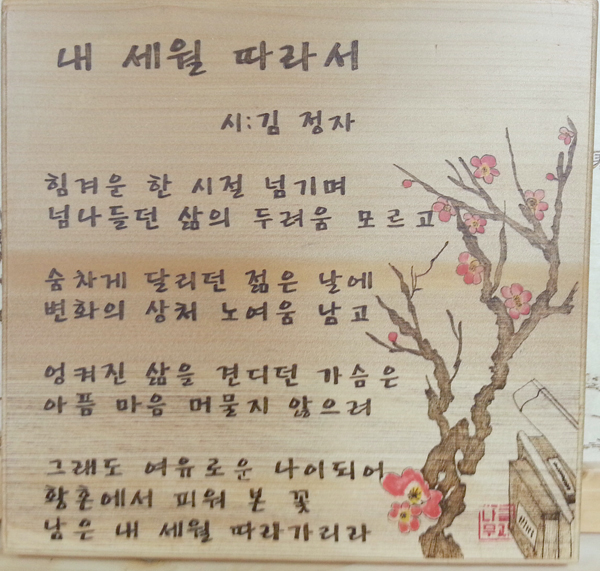 내 세월 따라서
시:김 정자
힘겨운 한 시절 넘기며
넘나들던 삶의 두려움 모르고
숨차게 달리던 젊은 날에
변화의 상처 노여움 남고
엉켜진 삶을 견디던 가슴은
아픔 마음 머물지 않으려
그래도 여유로운 나이되어
황혼에서 피워 본 꽃
남은 내 세월 따라가리라